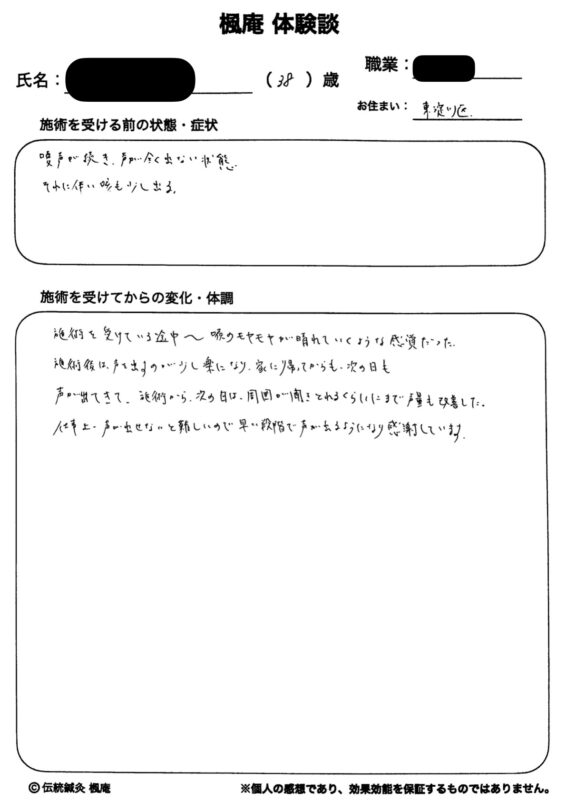 楓庵 体験談
氏名：
（38）歳
職業：
お住まい：東淀川区
施術を受ける前の状態・症状
嗄声が続き、声が全く出ない状態。
それに伴い咳も少し出る。
施術を受けてからの変化・体調
施術を受けている途中〜喉のモヤモヤが晴れていくような感覚だった。
施術後は、声を出すのが少し楽になり、家に帰ってからも、次の日も
声が出てきて、施術から、次の日は、周囲が聞きとれるくらいにまで声量も改善した。
仕事上、声が出せないと難しいので早い段階で声が出るようになり感謝しています。
©伝統鍼灸 楓庵
※個人の感想であり、効果効能を保証するものではありません。